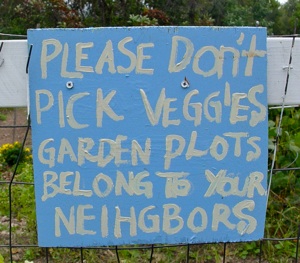 PLEASE DON'T
PICK VEGGIES
GARDEN PLOTS
BELONG TO YOUR
NEIHGBORS